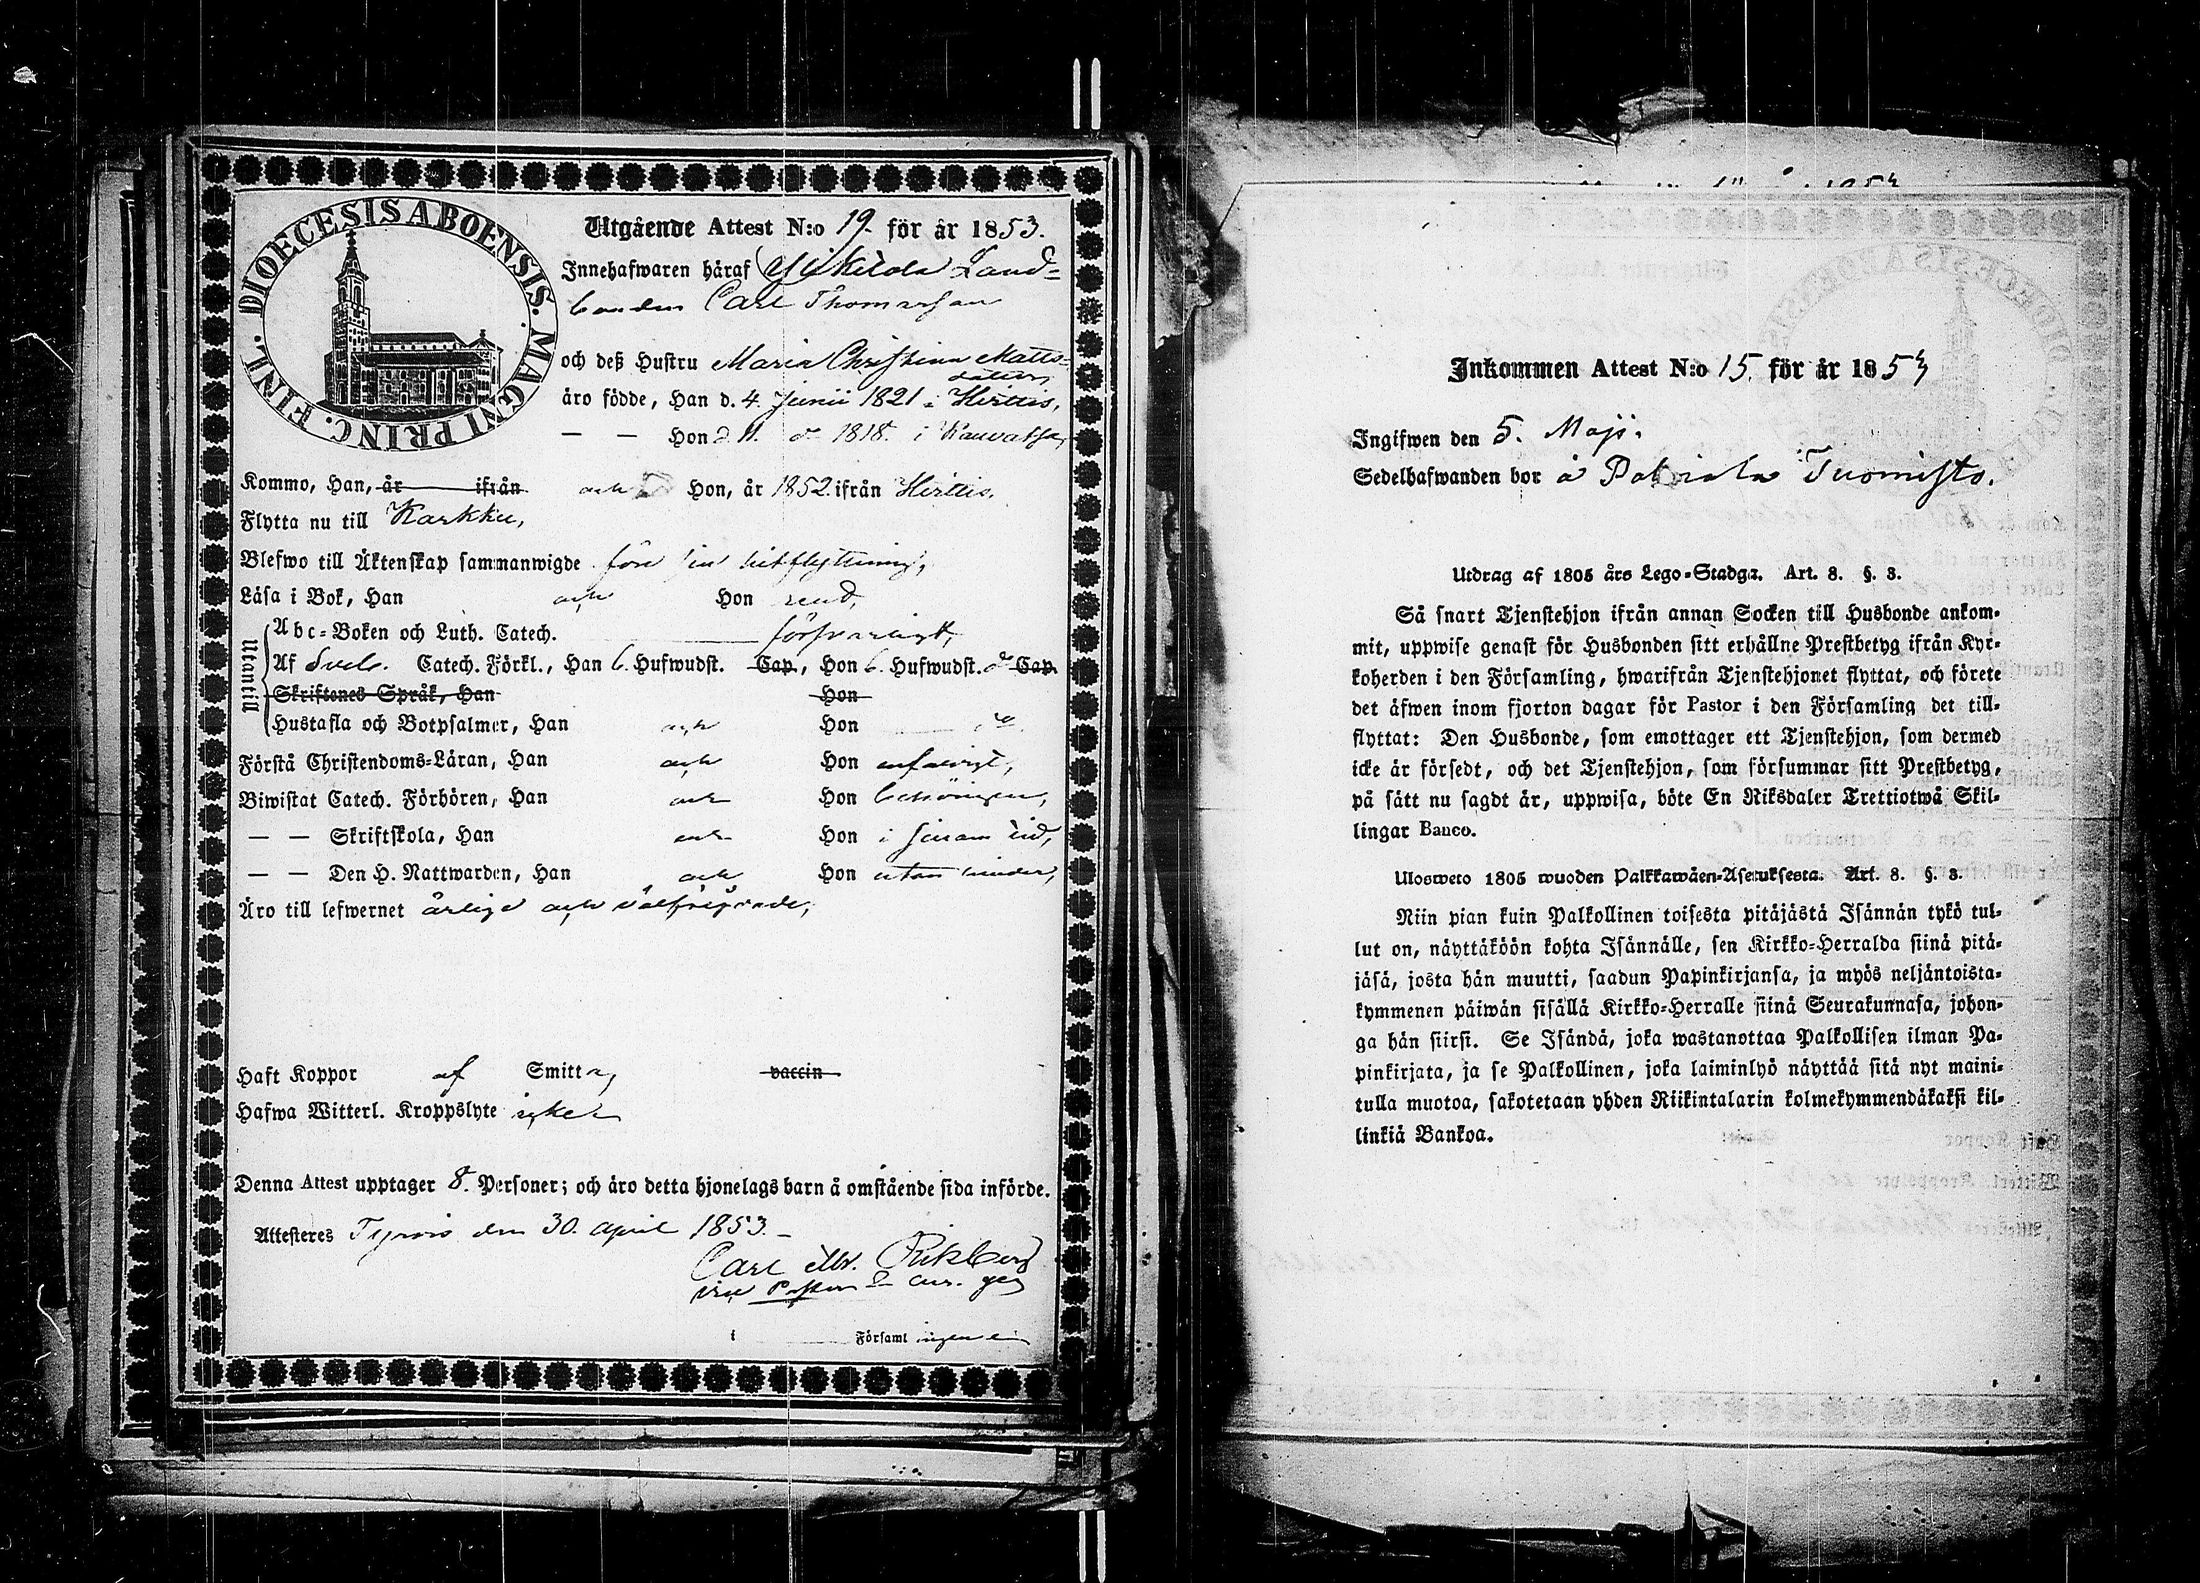 DIOECESIS ABOENSIS. MAGNI PRINC. FINL.
Utgående Attest N:o 19. för år 1853.
Innehafwaren häraf Yli Kilola Land=
bonden Carl Thomasson
och deß Hustru Maria Christina Matts=
dotter,
äro födde, Han d. 4. Junii 1821 i Hirttis,
— — Hon d 11. do 1818. i Kauvatsa,
Kommo, Han, år ifrån och Hon, år 1852 ifrån Hirttis.
Flytta nu till Karkku,
Blefwo till Äktenskap sammanwigde före sin hitflyttning,
Läsa i Bok, Han och Hon rend,
Utantill
Abc=Boken och Luth. Catech. försvarligt,
Af Sveb. Catech. Förkl., Han 6. Hufwudst. Cap., Hon 6. Hufwudst. Cap.
Skriftenes Språk, Han Hon
Hustafla och Botpsalmer, Han och Hon do.
Förstå Christendoms=Läran, Han och Hon enfaldigt,
Biwistat Catech. Förhören, Han och Hon behörigen,
— — Skriftskola, Han och Hon i sinom tid,
— — Den H. Nattwarden, Han och Hon utan hinder,
Äro till lefwernet ärlige och välfrejdade,
Haft Koppor af Smitta, vaccin
Hafwa Witterl. Kroppslyte icke.
Denna Attest upptager 8. Personer; och äro detta hjonelags barn å omstående sida införde.
Attesteres Tyrvis den 30. april 1853.
Carl
vice Pastor
i Församl ingen
Inkommen Attest N:o 15. för år 1853
Ingifwen den 5. Maji.
Sedelhafwanden bor å Tuomisto.
Utdrag af 1805 års Lego=Stadga. Art. 8. §. 3.
Så snart Tjenstehjon ifrån annan Socken till Husbonde ankom=
mit, uppwise genast för Husbonden sitt erhållne Prestbetyg ifrån Kyr=
koherden i den Församling, hwarifrån Tjenstehjonet flyttat, och förete
det äfwen inom fjorton dagar för Pastor i den Församling det till=
flyttat: Den Husbonde, som emottager ett Tjenstehjon, som dermed
icke är försedt, och det Tjenstehjon, som försummar sitt Prestbetyg,
på sätt nu sagdt är, uppwisa, böte En Riksdaler Trettiotwå Skil=
lingar Banco.
Ulosweto 1805 wuoden Palkkawäen=Asetuksesta. Art. 8. §. 3.
Niin pian kuin Palkollinen toisesta pitäjästä Isännän tykö tul=
lut on, näyttäköön kohta Isännälle, sen Kirkko=Herralda siinä pitä=
jäsä, josta hän muutti, saadun Papinkirjansa, ja myös neljäntoista=
kymmenen päiwän sisällä Kirkko=Herralle siinä Seurakunnasa, johon=
ga hän siirsi. Se Isändä, joka wastanottaa Palkollisen ilman Pa=
pinkirjata, ja se Palkollinen, joka laiminlyö näyttää sitä nyt maini=
tulla muotoa, sakotetaan yhden Riikintalarin kolmekymmendäkaksi kil=
linkiä Bankoa.